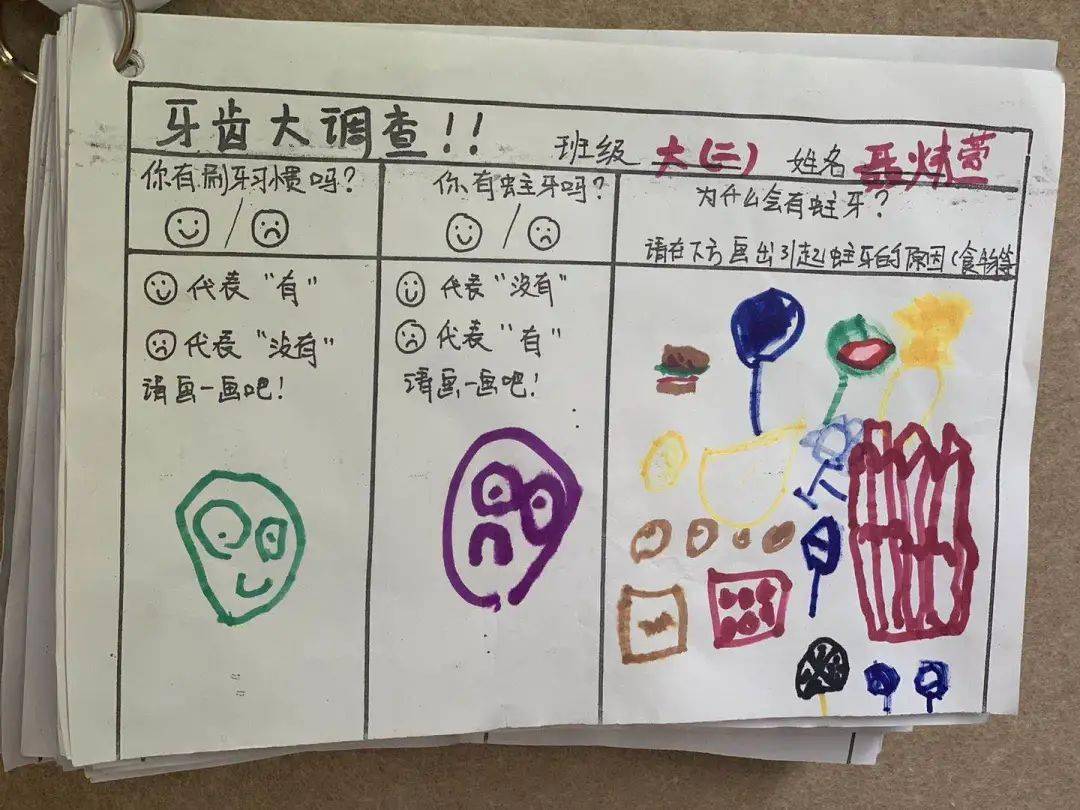 牙齿大调查!!
班级 大(二) 姓名
你有刷牙习惯吗?
你有蛀牙吗?
为什么会有蛀牙?
/
/
请在下方画出引起蛀牙的原因(食物等
代表"有"
代表"没有"
请画一画吧!
代表"没有"
代表"有"
请画一画吧!